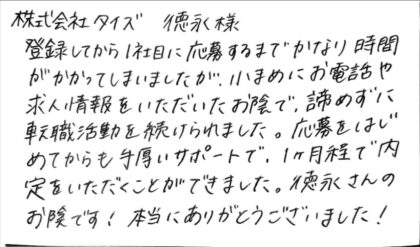 株式会社タイズ 徳永様
登録してから1社目に応募するまでかなり時間
がかかってしまいましたが、小まめにお電話や
求人情報をいただいたお陰で、諦めずに
転職活動を続けられました。応募をはじ
めてからも手厚いサポートで、1ヶ月程で内
定をいただくことができました。徳永さんの
お陰です！本当にありがとうございました！